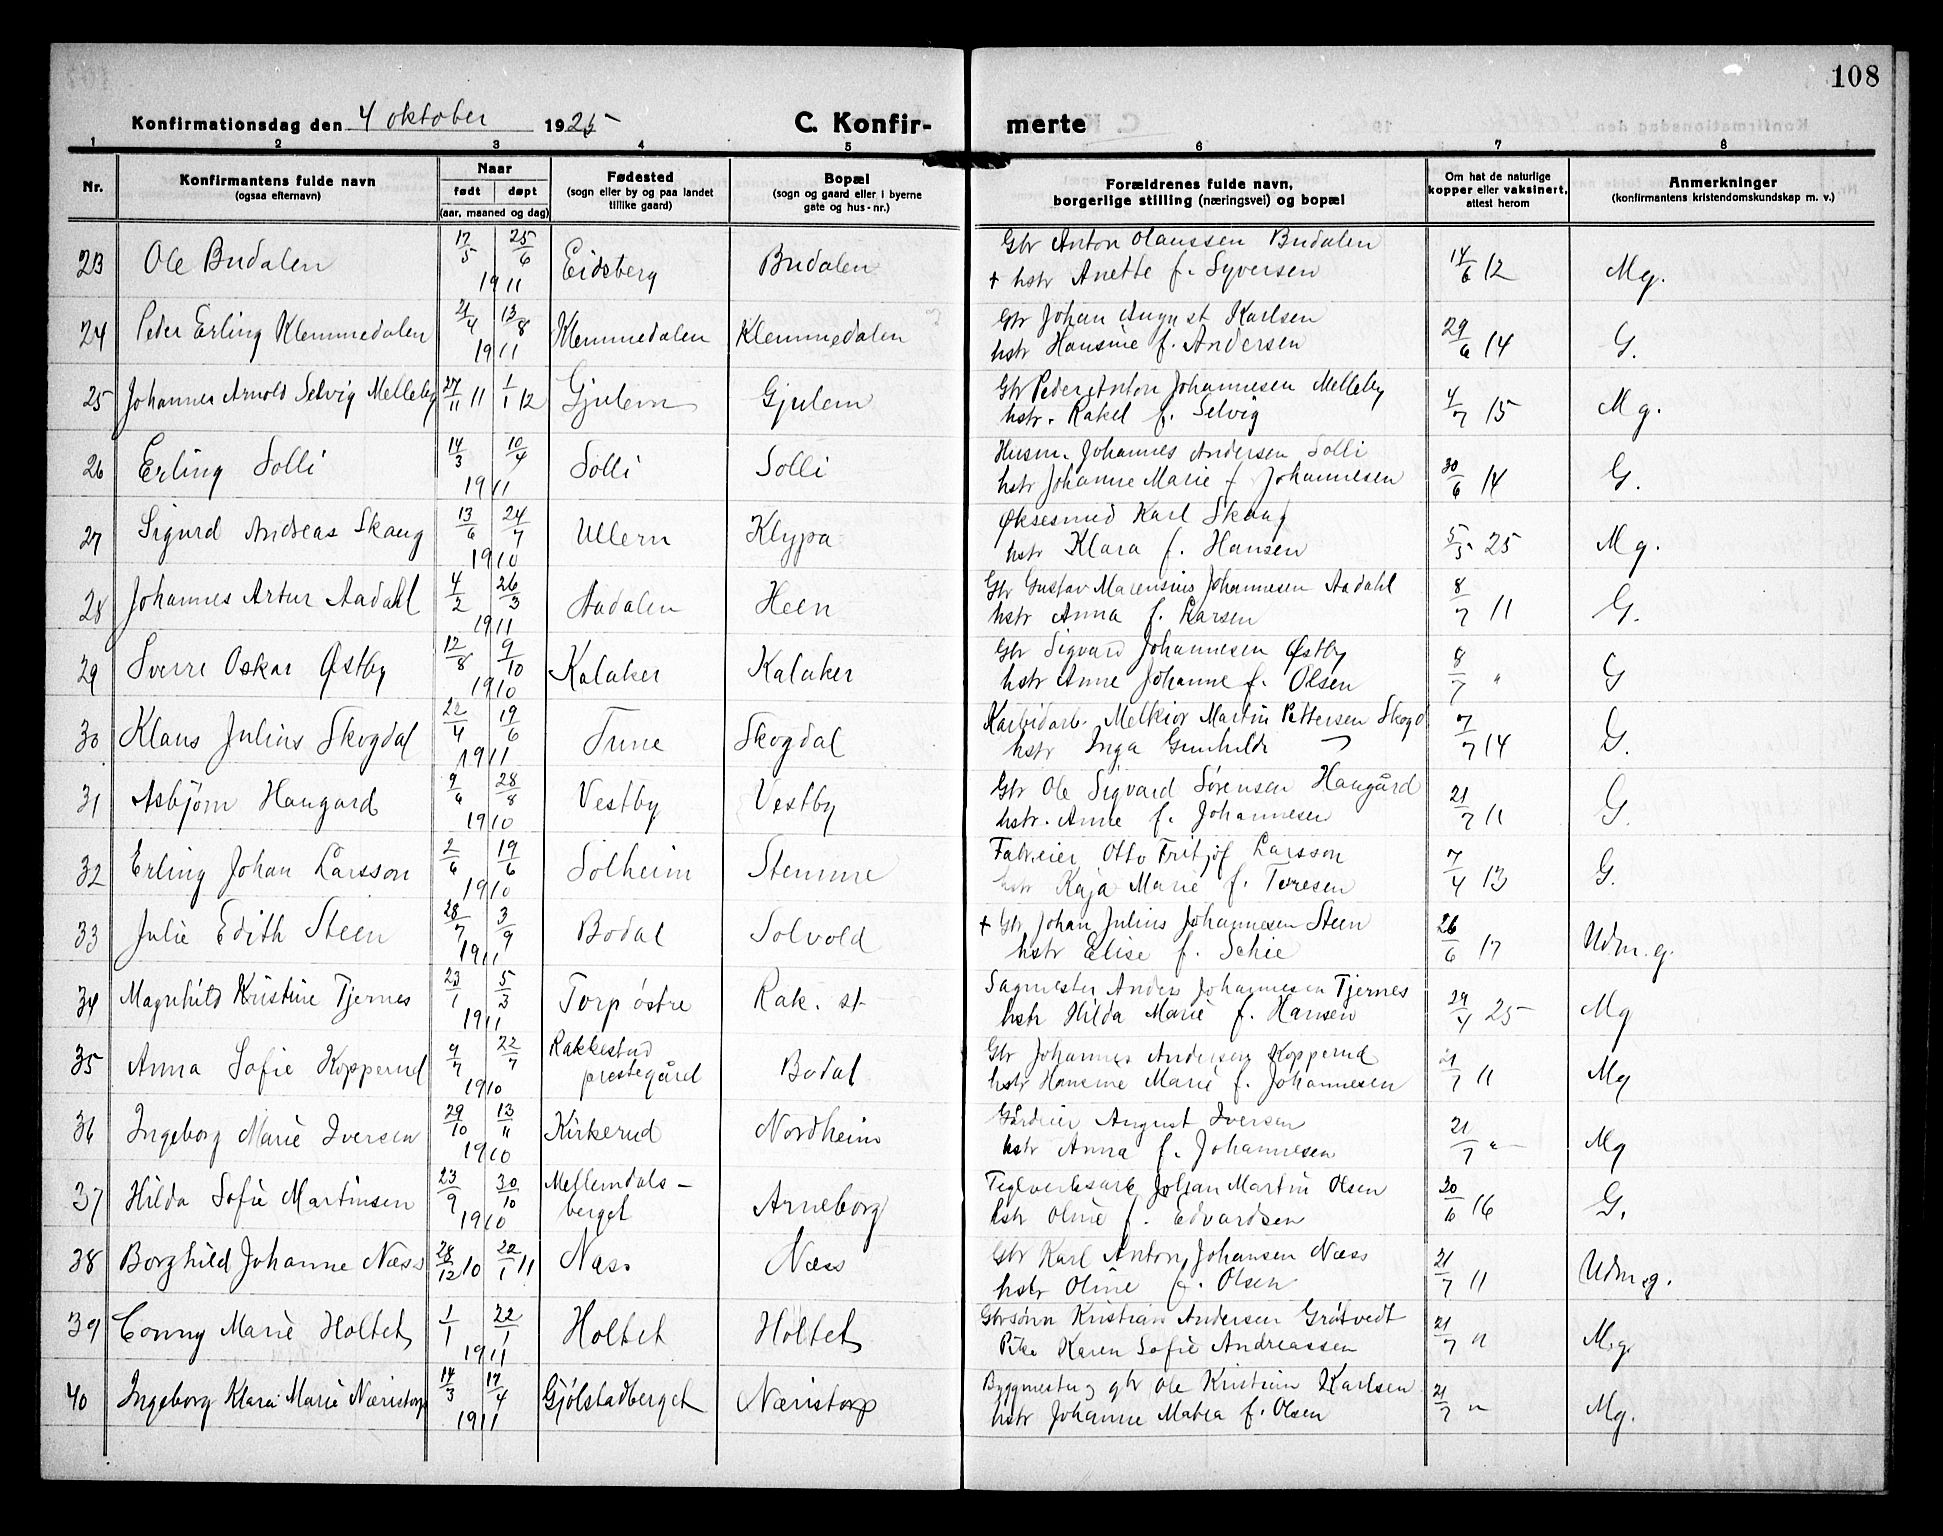 108
Konfirmationsdag den 4 oktober 1925
C. Konfir-
merte
1 2 3 4 5 6 7 8
Nr.
Konfirmantens fulde navn
(ogsaa efternavn)
Naar
født døpt
(aar, maaned og dag)
Fødested
(sogn eller by og paa landet
tillike gaard)
Bopæl
(sogn og gaard eller i byerne
gate og hus-nr.)
Forældrenes fulde navn,
borgerlige stilling (næringsvei) og bopæl
Om hat de naturlige
kopper eller vaksinert,
attest herom
Anmerkninger
(konfirmantens kristendomskundskap m. v.)
23 Ole Budalen 17/5 25/6 1911 Eidsberg Budalen
Gbr Anton Olaussen Budalen
+ hstr Anette f. Syversen 14/6 12 Mg.
24 Peder Erling Klemmedalen 21/4 13/8 1911 Klemmedalen Klemmedalen
Gbr Johan August Karlsen
hstr Hansine f. Andersen 29/6 14 G.
25 Johannes Arnold Selvig Melleby 27/11 11 1/1 12 Gjulem Gjulem
Gbr Peder Anton Johannesen Melleby
hstr. Rakel f. Selvig 4/7 15 Mg.
26 Erling Solli 14/3 10/4 1911 Solli Solli
Husm. Johannes Andersen Solli
hstr Johanne Marie f Johannesen 30/6 14 G.
27 Sigurd Andreas Skaug 13/6 24/7 1910 Ullern Klypa
Øksesmed Karl Skaug
hstr Klara f. Hansen 5/5 25 Mg.
28 Johannes Artur Aadahl 4/2 26/3 1911 Aadalen Heen
Gbr Gustav Marensius Johannesen Aadahl
hstr Anna f. Larsen 8/7 11 G.
29 Sverre Oskar Østby 12/8 9/10 1910 Kalaker Kalaker
Gbr Sigvard Johannesen Østby
hstr Anne Johanne f. Olsen 8/7 " G
30 Klaus Julius Skogdal 22/4 19/6 1911 Tune Skogdal
Karbidarb. Melkior Martin Pettersen Skogd
hstr Inga Gunhilde 7/7 14 G.
31 Asbjørn Haugard 9/6 28/8 1910 Vestby Vestby
Gbr Ole Sigvard Sørensen Haugård
hstr. Anne f. Johannesen 21/7 11 G.
32 Erling Johan Larsson 2/6 19/6 1910 Solheim Stemme
Fabreier Otto Fritjof Larsson
hstr Kaja Marie f. Toresen 7/4 13 G.
33 Julie Edith Steen 28/7 3/9 1911 Bodal Solvold
+ Gbr Johan Julius Johannesen Steen
hstr Elise f. Schie 26/6 17 Udm. g.
34 Magnhild Kristine Tjernes 23/1 5/3 1911 Torp østre Rak. st
Sagmester Anders Johannesen Tjernes
hstr Hilda Marie f. Hansen 29/4 25 Mg
35 Anna Sofie Kopperud 9/7 22/7 1910 Rakkestad
prestegård Bodal
Gbr Johannes Andersen Kopperud
hstr Hansine Marie f. Johannesen 21/7 11 Mg
36 Ingeborg Marie Iversen 29/10 13/11 1910 Kirkerud Nordheim
Gårdeier August Iversen
hstr Anna f. Johannesen 21/7 " Mg
37 Hilda Sofie Martinsen 23/9 30/10 1910 Mellemdals-
berget Arneborg
Teglverksarb Johan Martin Olsen
hstr Oline f. Edvardsen 30/6 16 G.
38 Borghild Johanne Næss 28/12 10 22/1 11 Næss Næss
Gbr Karl Anton Johansen Næss
hstr Oline f. Olsen 21/7 11 Udm. g.
39 Conny Marie Holtet 1/1 22/1 1911 Holtet Holtet
Gbrsønn Kristian Andersen Gråtvedt
Pike Karen Sofie Andreassen 21/7 " M.g.
40 Ingeborg Klara Marie Næristorp 14/3 17/4 1911 Gjølstadberget Næristorp
Byggmester og gbr Ole Kristian Karlsen
hstr Johanne Matea f. Olsen 21/7 " Mg.